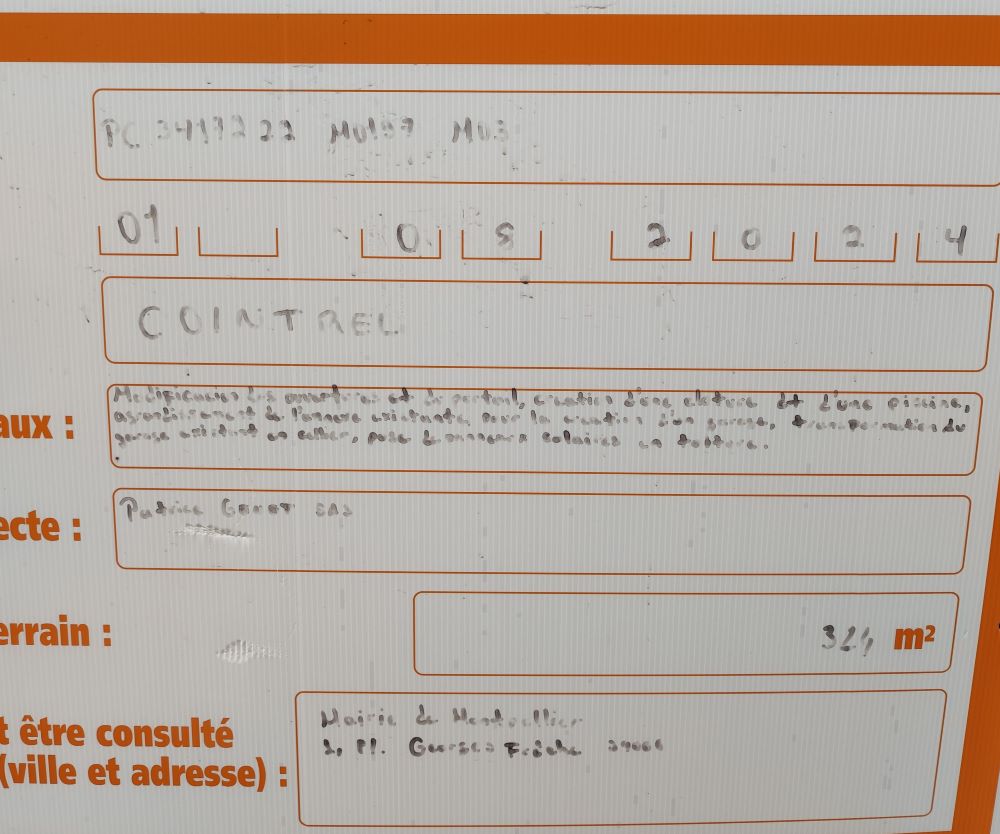 PC 3417222 M0197 M03
01 08 2024
COINTREL
Modification des ouvertures et du portail, création d'une cloture et d'une piscine,
agrandissement de l'annexe existante, pour la création d'un garage, transformation du
garage existant en cellier, pose de panneaux solaires en toiture.
aux :
Patrice Genet SAS
ecte :
errain :
324 m²
t être consulté
(ville et adresse) :
Mairie de Montpellier
1, Pl. Georges Frêche 34000